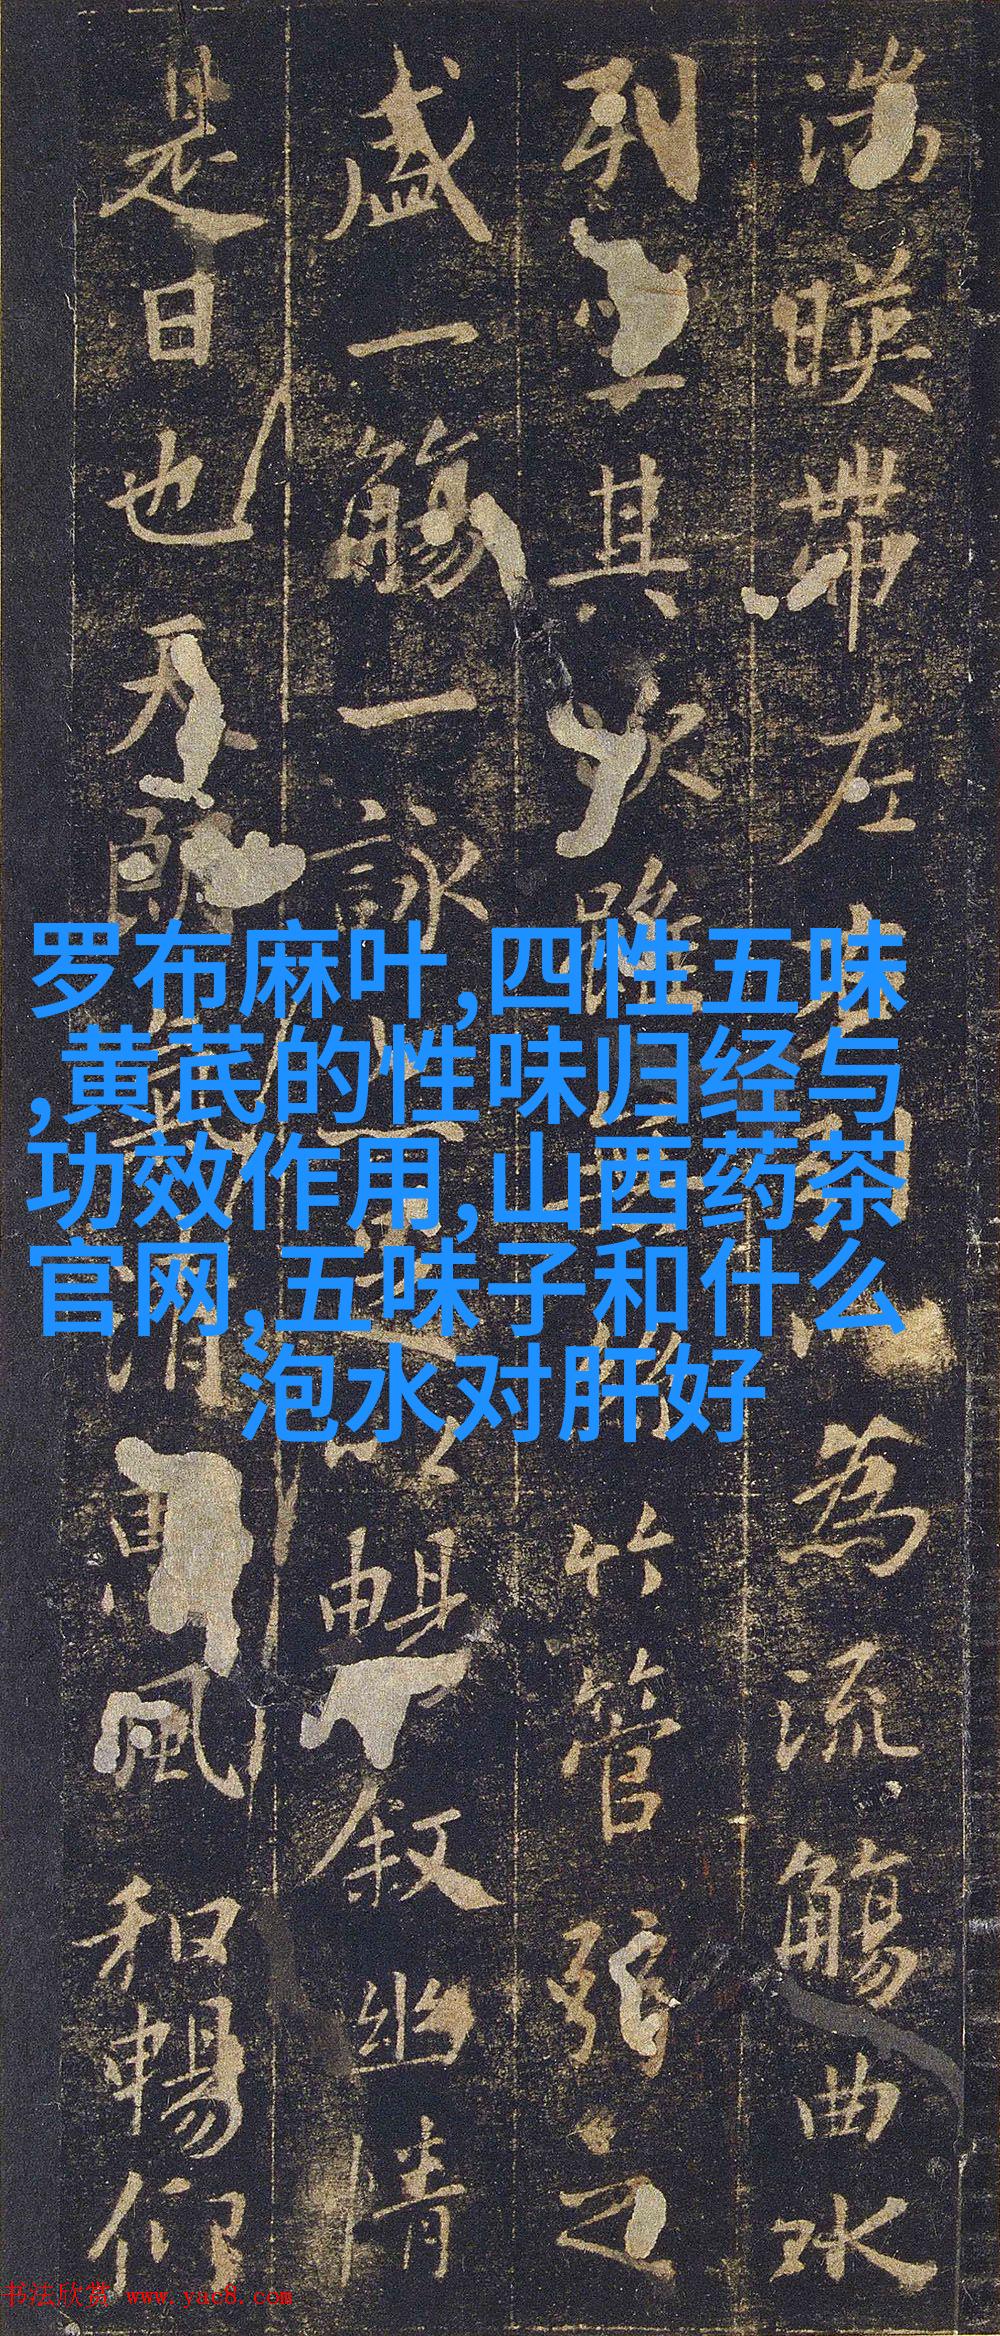 湍暎帶左右引以為流觴曲水
列坐其次雖無絲竹管弦之
盛一觴一詠亦足以暢敘幽情
是日也天朗氣清惠風和暢仰
罗布麻叶,四性五味
,黄芪的性味归经与
功效作用,山西药茶
官网,五味子和什么
泡水对肝好
书法欣赏 www.yac8.com